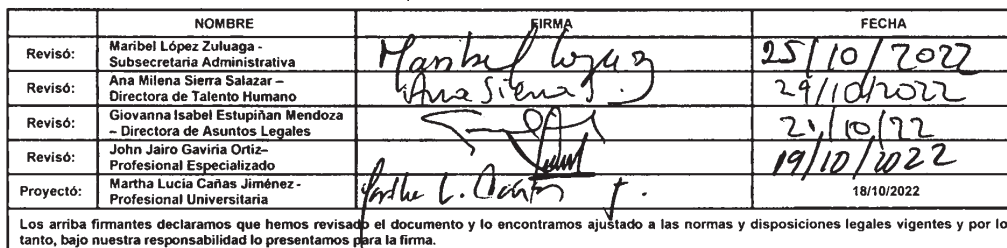 NOMBRE FIRMA FECHA
Revisó: Maribel López Zuluaga -
Subsecretaria Administrativa
Maribel López Z 25/10/2022
Revisó: Ana Milena Sierra Salazar –
Directora de Talento Humano
Ana Sierra S. 24/10/2022
Revisó: Giovanna Isabel Estupiñan Mendoza
– Directora de Asuntos Legales
21/10/22
Revisó: John Jairo Gaviria Ortiz–
Profesional Especializado
19/10/2022
Proyectó: Martha Lucia Cañas Jiménez -
Profesional Universitaria
Martha L. Cañas J. 18/10/2022
Los arriba firmantes declaramos que hemos revisado el documento y lo encontramos ajustado a las normas y disposiciones legales vigentes y por lo
tanto, bajo nuestra responsabilidad lo presentamos para la firma.